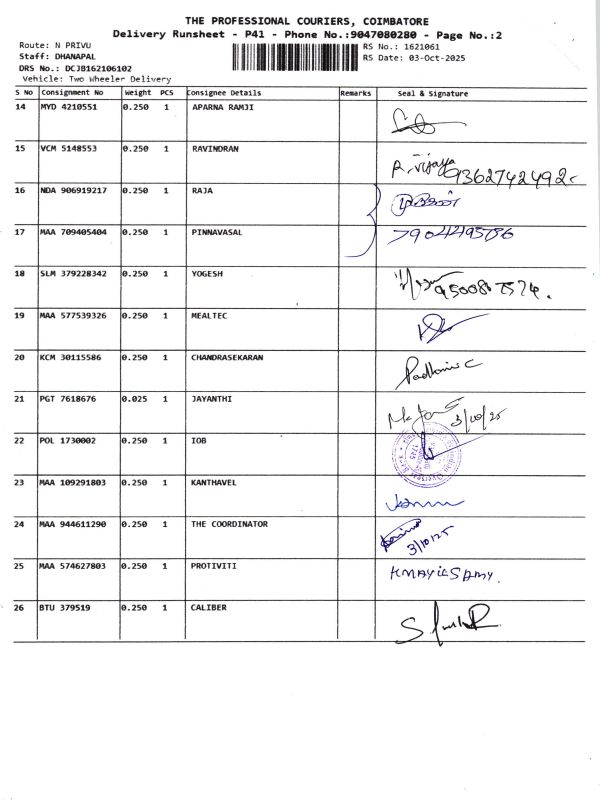 THE PROFESSIONAL COURIERS, COIMBATORE
Delivery Runsheet - P41 - Phone No.:9047080280 - Page No.:2
Route: N PRIVU
RS No.: 1621061
Staff: DHANAPAL
RS Date: 03-Oct-2025
DRS No.: DCJB162106102
Vehicle: Two Wheeler Delivery
S No Consignment No Weight PCS Consignee Details Remarks Seal & Signature
14 MYD 4210551 0.250 1 APARNA RAMJI
15 VCM 5148553 0.250 1 RAVINDRAN R. Vijaya
9362742492
16 NDA 906919217 0.250 1 RAJA
17 MAA 709405404 0.250 1 PINNAVASAL 7904495786
18 SLM 379228342 0.250 1 YOGESH
19 MAA 577539326 0.250 1 MEALTEC
20 KCM 30115586 0.250 1 CHANDRASEKARAN Padhmini C
21 PGT 7618676 0.025 1 JAYANTHI 3/10/25
22 POL 1730002 0.250 1 IOB
23 MAA 109291803 0.250 1 KANTHAVEL
24 MAA 944611290 0.250 1 THE COORDINATOR
3/10/25
25 MAA 574627803 0.250 1 PROTIVITI K MAYILSAMY.
26 BTU 379519 0.250 1 CALIBER